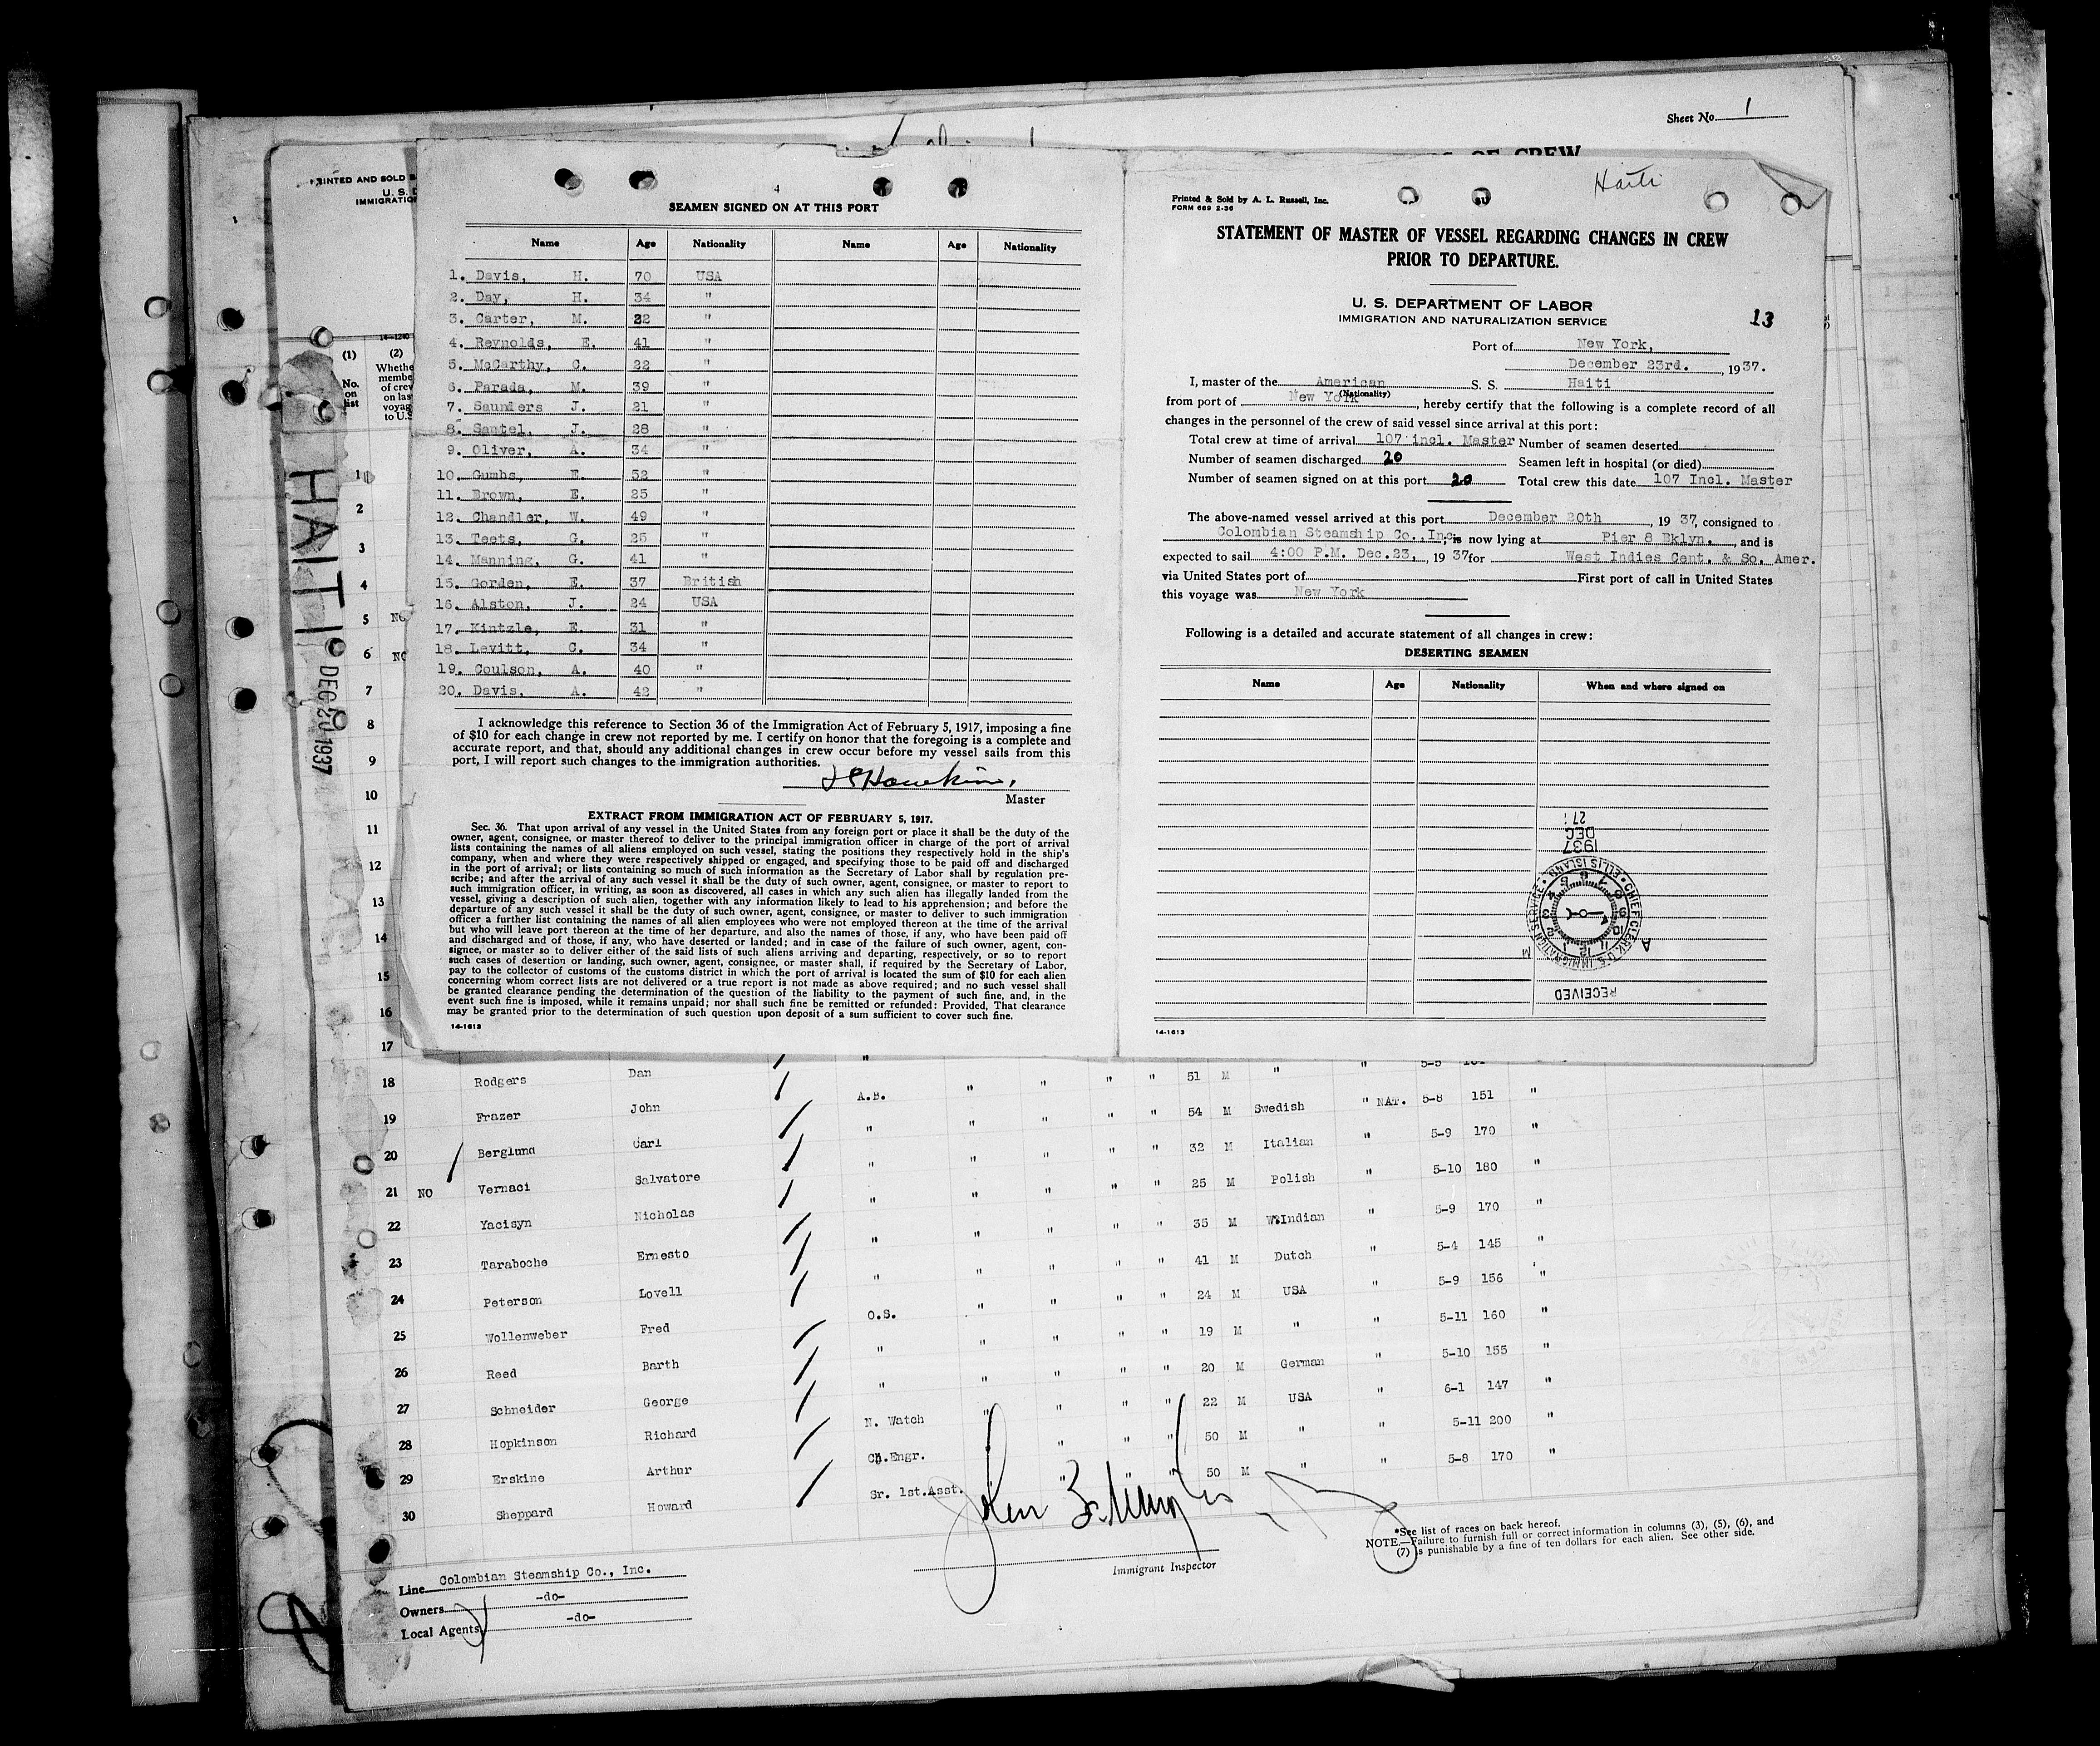 Sheet No. 1
OF CREW
PRINTED AND SOLD
U. S.
IMMIGRATION
14-1240
(1)
No.
on
list
(2)
Whether
member
of crew
on last
voyage
to U.S.
HAITI
DEC 20 1937
4
SEAMEN SIGNED ON AT THIS PORT
Name Age Nationality Name Age Nationality
1. Davis, H. 70 USA
2. Day, H. 34 "
3. Carter, M. 32 "
4. Reynolds, E. 41 "
5. McCarthy, C. 22 "
6. Parada, M. 39 "
7. Saunders J. 21 "
8. Santel, J. 28 "
9. Oliver, A. 34 "
10. Gumbs, E. 52 "
11. Brown, E. 25 "
12. Chandler, W. 49 "
13. Teets, G. 25 "
14. Manning, G. 41 "
15. Gorden, E. 37 British
16. Alston, J. 24 USA
17. Kintzle, E. 31 "
18. Levitt, C. 34 "
19. Coulson, A. 40 "
20. Davis, A. 42 "
I acknowledge this reference to Section 36 of the Immigration Act of February 5, 1917, imposing a fine
of $10 for each change in crew not reported by me. I certify on honor that the foregoing is a complete and
accurate report, and that, should any additional changes in crew occur before my vessel sails from this
port, I will report such changes to the immigration authorities.
Master
EXTRACT FROM IMMIGRATION ACT OF FEBRUARY 5, 1917.
Sec. 36. That upon arrival of any vessel in the United States from any foreign port or place it shall be the duty of the
owner, agent, consignee, or master thereof to deliver to the principal immigration officer in charge of the port of arrival
lists containing the names of all aliens employed on such vessel, stating the positions they respectively hold in the ship's
company, when and where they were respectively shipped or engaged, and specifying those to be paid off and discharged
in the port of arrival; or lists containing so much of such information as the Secretary of Labor shall by regulation pre-
scribe; and after the arrival of any such vessel it shall be the duty of such owner, agent, consignee, or master to report to
such immigration officer, in writing, as soon as discovered, all cases in which any such alien has illegally landed from the
vessel, giving a description of such alien, together with any information likely to lead to his apprehension; and before the
departure of any such vessel it shall be the duty of such owner, agent, consignee, or master to deliver to such immigration
officer a further list containing the names of all alien employees who were not employed thereon at the time of the arrival
but who will leave port thereon at the time of her departure, and also the names of those, if any, who have been paid off
and discharged and of those, if any, who have deserted or landed; and in case of the failure of such owner, agent, con-
signee, or master so to deliver either of the said lists of such aliens arriving and departing, respectively, or so to report
such cases of desertion or landing, such owner, agent, consignee, or master shall, if required by the Secretary of Labor,
pay to the collector of customs of the customs district in which the port of arrival is located the sum of $10 for each alien
concerning whom correct lists are not delivered or a true report is not made as above required; and no such vessel shall
be granted clearance pending the determination of the question of the liability to the payment of such fine, and, in the
event such fine is imposed, while it remains unpaid; nor shall such fine be remitted or refunded: Provided, That clearance
may be granted prior to the determination of such question upon deposit of a sum sufficient to cover such fine.
14-1613
Haiti
Printed & Sold by A. L. Russell, Inc.
FORM 689 2-36
STATEMENT OF MASTER OF VESSEL REGARDING CHANGES IN CREW
PRIOR TO DEPARTURE.
U. S. DEPARTMENT OF LABOR
IMMIGRATION AND NATURALIZATION SERVICE
13
Port of New York,
December 23rd. , 1937.
I, master of the American S. S. Haiti
(Nationality)
from port of New York , hereby certify that the following is a complete record of all
changes in the personnel of the crew of said vessel since arrival at this port:
Total crew at time of arrival 107 incl. Master Number of seamen deserted
Number of seamen discharged 20 Seamen left in hospital (or died)
Number of seamen signed on at this port 20 Total crew this date 107 Incl. Master
The above-named vessel arrived at this port December 20th , 19 37, consigned to
Colombian Steamship Co., Inc., is now lying at Pier 8 Bklyn. , and is
expected to sail 4:00 P.M. Dec.23, , 19 37 for West Indies Cent. & So. Amer.
via United States port of First port of call in United States
this voyage was New York
Following is a detailed and accurate statement of all changes in crew:
DESERTING SEAMEN
Name Age Nationality When and where signed on
RECEIVED
CHIEF CLERK U.S. IMMIGRATION SERVICE ELLIS ISLAND
A M
1937
DEC
27
14-1613
1
2
3
4
5 NO
6 NO
7
8
9
10
11
12
13
14
15
16
17 " 5-5
18 Rodgers Dan A.B. " " " " 51 M " " 5-8 151 "
19 Frazer John " " " " " 54 M Swedish " NAT. 5-9 170 "
20 Berglund Carl " " " " " 32 M Italian " 5-10 180 "
21 NO Vernaci Salvatore " " " " " 25 M Polish " 5-9 170 "
22 Yacisyn Nicholas " " " " " 35 M W.Indian " 5-4 145 "
23 Taraboche Ernesto " " " " " 41 M Dutch " 5-9 156 "
24 Peterson Lovell O.S. " " " " 24 M USA " 5-11 160 "
25 Wollenweber Fred " " " " " 19 M " " 5-10 155 "
26 Reed Barth " " " " " 20 M German " 6-1 147 "
27 Schneider George N. Watch " " " " 22 M USA " 5-11 200 "
28 Hopkinson Richard Ch.Engr. " " " 50 M " " 5-8 170 "
29 Erskine Arthur Sr. 1st.Asst. " " " 50 M " "
30 Sheppard Howard
Immigrant Inspector
*See list of races on back hereof.
NOTE.—Failure to furnish full or correct information in columns (3), (5), (6), and
(7) is punishable by a fine of ten dollars for each alien. See other side.
Line Colombian Steamship Co., Inc.
Owners -do-
Local Agents -do-